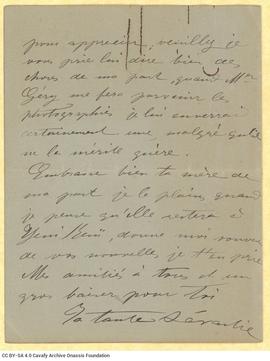 pour apprecier, veuillez je
vous prie lui dire bien des
choses de ma part, quand Mr
Géry me fera parvenir les
photographies je lui enverrai
certainement une malgré qu'il
ne la mérite guère.
Embrasse bien ta mère de
ma part je la plains quand
je pense qu'elle restera à
Yeni Keuï, donne moi souvent
de vos nouvelles je t'en prie
Mes amitiés à tous et un
gros baiser pour toi
Ta tante
CC BY-SA 4.0 Cavafy Archive Onassis Foundation